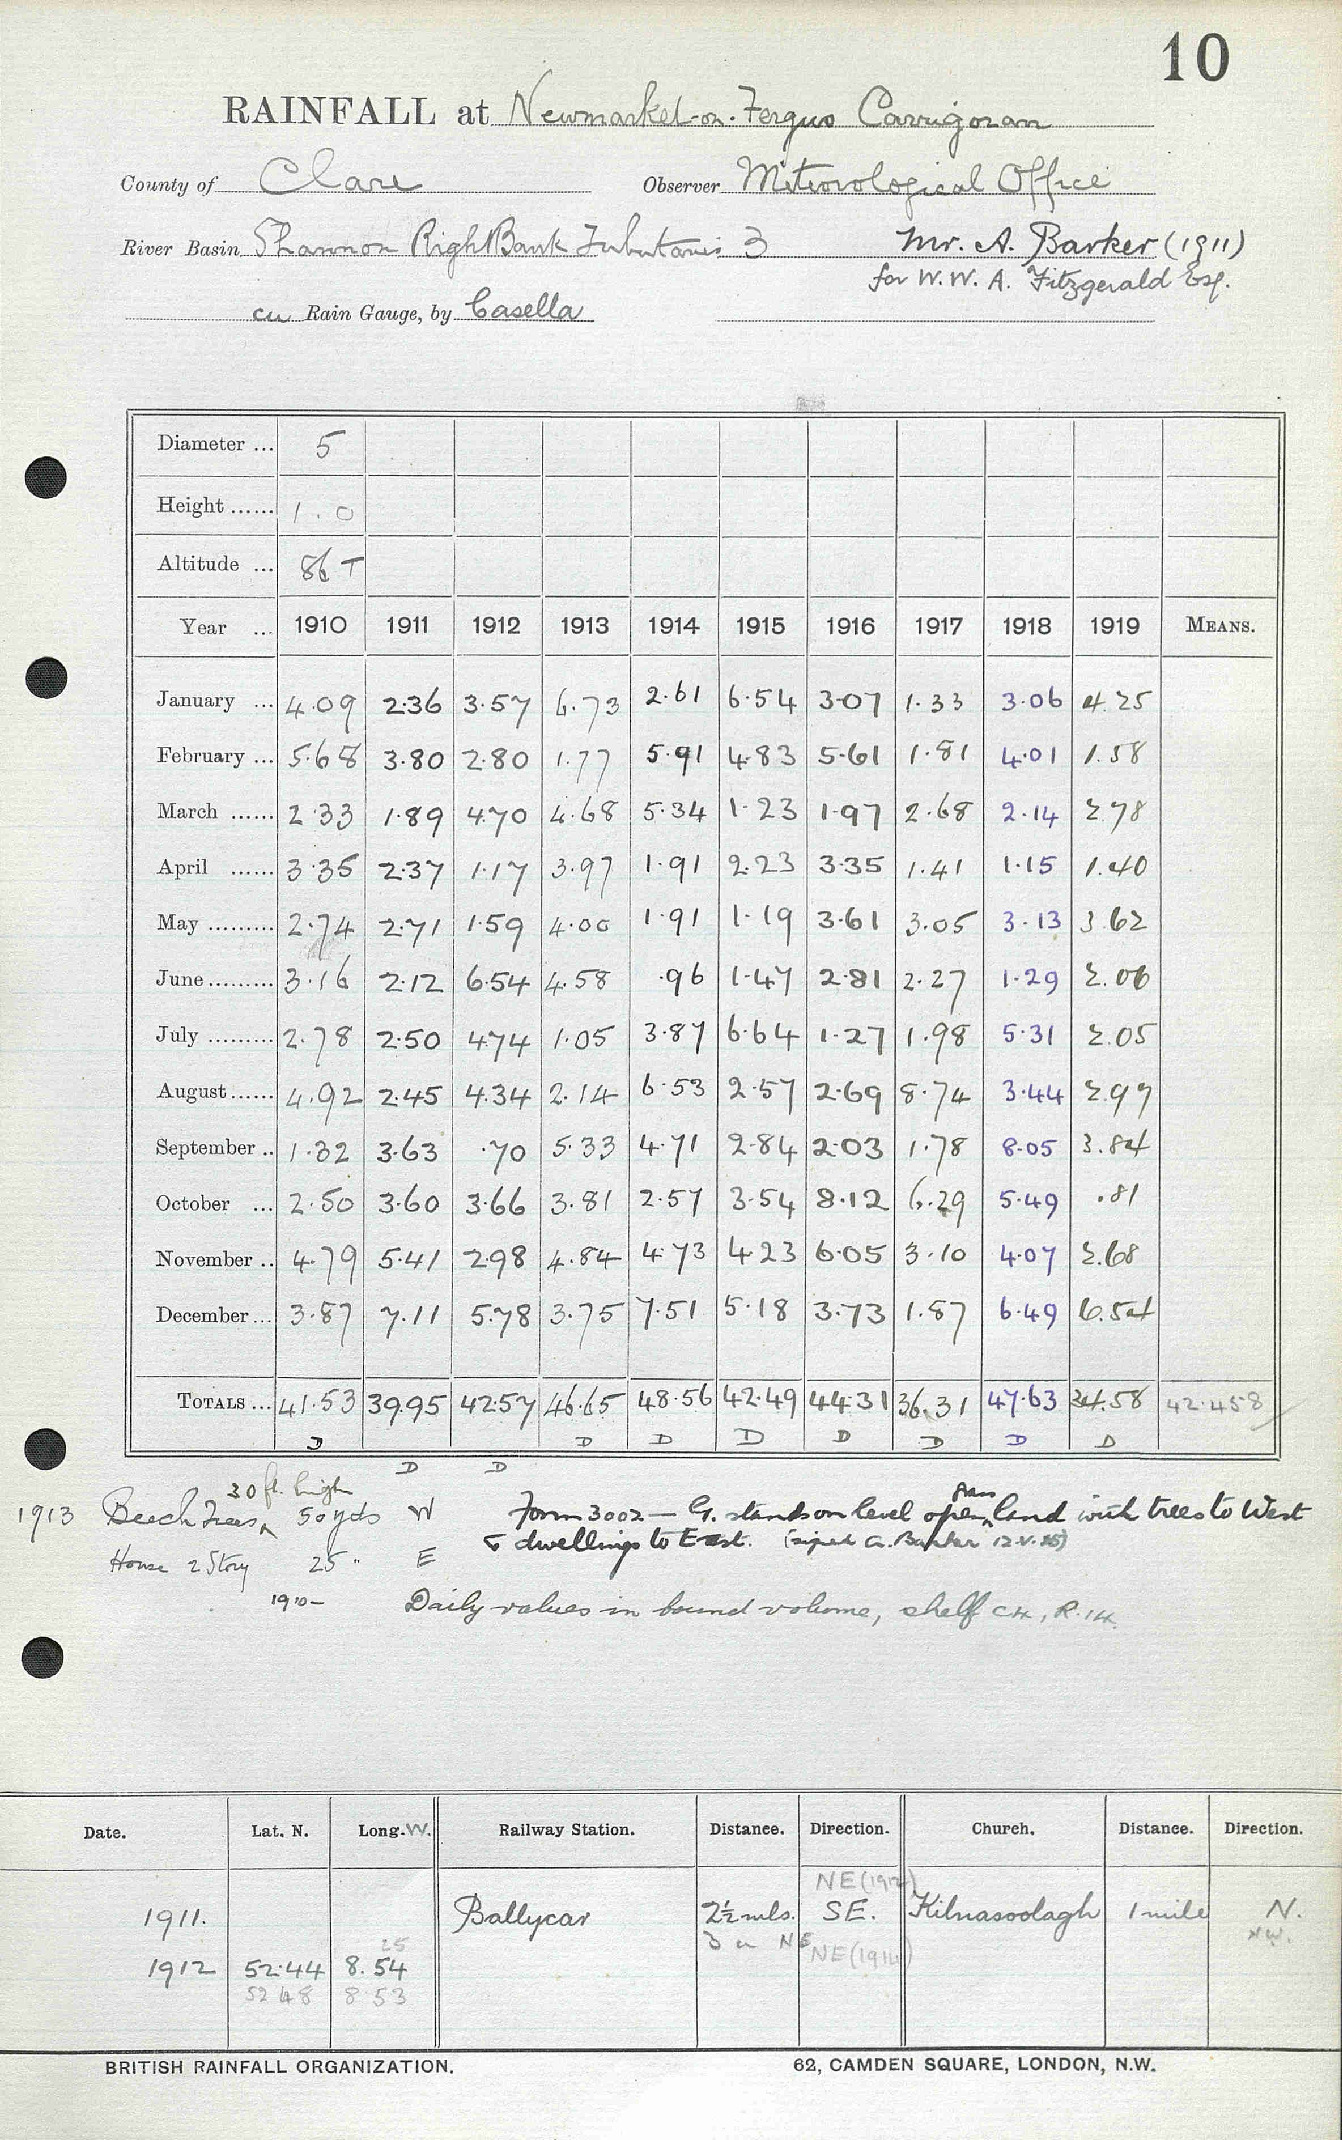 10
RAINFALL at Newmarket-on-Fergus Carrigoran
County of Clare Observer Meteorological Office
River Basin Shannon Right Bank Tributaries 3 Mr. A. Barker (1911)
for W. W. A. Fitzgerald Esq.
cu Rain Gauge, by Casella
Diameter ... 5
Height ...... 1.0
Altitude ... 86 T
Year ... 1910 1911 1912 1913 1914 1915 1916 1917 1918 1919 MEANS.
January ... 4.09 2.36 3.57 6.73 2.61 6.54 3.07 1.33 3.06 4.25
February ... 5.68 3.80 2.80 1.77 5.91 4.83 5.61 1.81 4.01 1.58
March ...... 2.33 1.89 4.70 4.68 5.34 1.23 1.97 2.68 2.14 2.78
April ...... 3.35 2.37 1.17 3.97 1.91 2.23 3.35 1.41 1.15 1.40
May ......... 2.74 2.71 1.59 4.00 1.91 1.19 3.61 3.05 3.13 3.62
June ......... 3.16 2.12 6.54 4.58 .96 1.47 2.81 2.27 1.29 2.06
July ......... 2.78 2.50 4.74 1.05 3.87 6.64 1.27 1.98 5.31 2.05
August ...... 4.92 2.45 4.34 2.14 6.53 2.57 2.69 8.74 3.44 2.97
September .. 1.32 3.63 .70 5.33 4.71 2.84 2.03 1.78 8.05 3.84
October ... 2.50 3.60 3.66 3.81 2.57 3.54 8.12 6.29 5.49 .81
November .. 4.79 5.41 2.98 4.84 4.73 4.23 6.05 3.10 4.07 2.68
December ... 3.87 7.11 5.78 3.75 7.51 5.18 3.73 1.87 6.49 6.54
TOTALS ... 41.53 39.95 42.57 46.65 48.56 42.49 44.31 36.31 47.63 34.58 42.458
D D D D D D D D D D
30 ft. high
1913 Beech Trees 50 yds W Form 3002 — G. stands on level open grass land with trees to West
& dwellings to East. (signed A. Barker 12.V.15)
House 2 Story 25 " E
1910— Daily values in bound volume, shelf C4, R.14.
Date. Lat. N. Long. W. Railway Station. Distance. Direction. Church. Distance. Direction.
NE (1912)
1911. Ballycar 2½ mls. SE. Kilnasoolagh 1 mile N.
3 " NE NE (1914) NW.
25
1912 52.44 8.54
52 48 8 53
BRITISH RAINFALL ORGANIZATION. 62, CAMDEN SQUARE, LONDON, N.W.